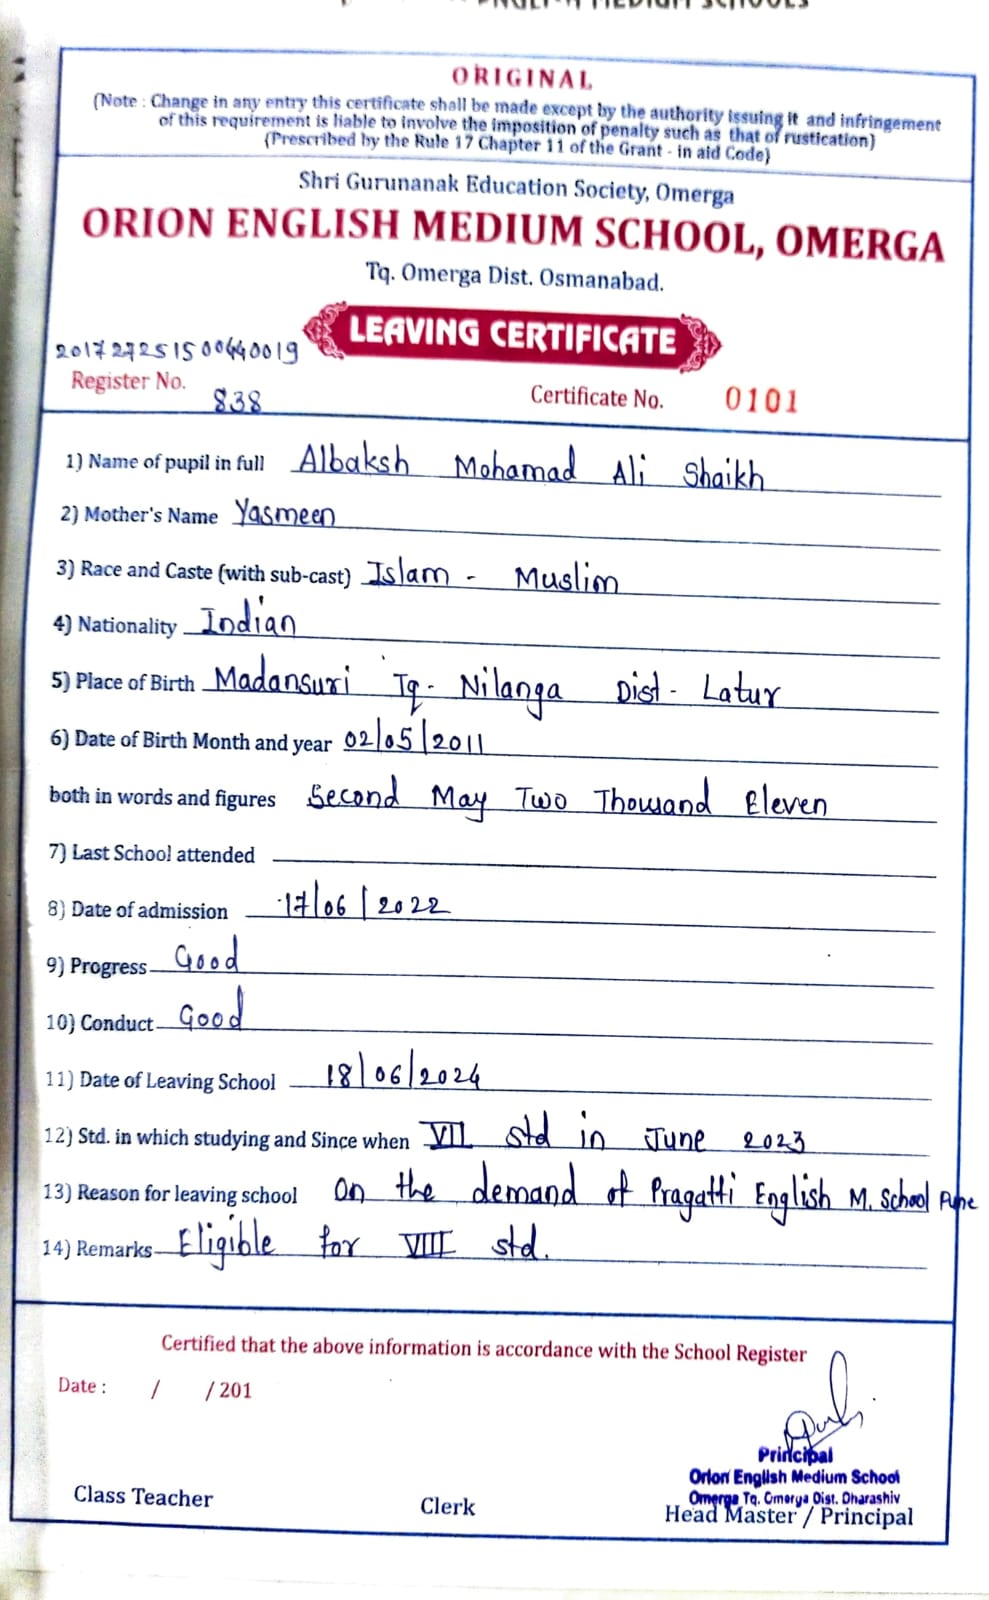 ORIGINAL
(Note : Change in any entry this certificate shall be made except by the authority issuing it and infringement
of this requirement is liable to involve the imposition of penalty such as that of rustication)
(Prescribed by the Rule 17 Chapter 11 of the Grant - in aid Code)
Shri Gurunanak Education Society, Omerga
ORION ENGLISH MEDIUM SCHOOL, OMERGA
Tq. Omerga Dist. Osmanabad.
LEAVING CERTIFICATE
201727251500440019
Register No. 838 Certificate No. 0101
1) Name of pupil in full Albaksh Mohamad Ali Shaikh
2) Mother's Name Yasmeen
3) Race and Caste (with sub-cast) Islam - Muslim
4) Nationality Indian
5) Place of Birth Madansuri Tq - Nilanga Dist - Latur
6) Date of Birth Month and year 02/05/2011
both in words and figures Second May Two Thousand Eleven
7) Last School attended
8) Date of admission 17/06/2022
9) Progress Good
10) Conduct Good
11) Date of Leaving School 18/06/2024
12) Std. in which studying and Since when VII std in June 2023
13) Reason for leaving school on the demand of Pragatti English M. School Pune
14) Remarks Eligible for VIII std.
Certified that the above information is accordance with the School Register
Date : / /201
Principal
Orion English Medium School
Omerga Tq. Omerga Dist. Dharashiv
Class Teacher Clerk Head Master / Principal